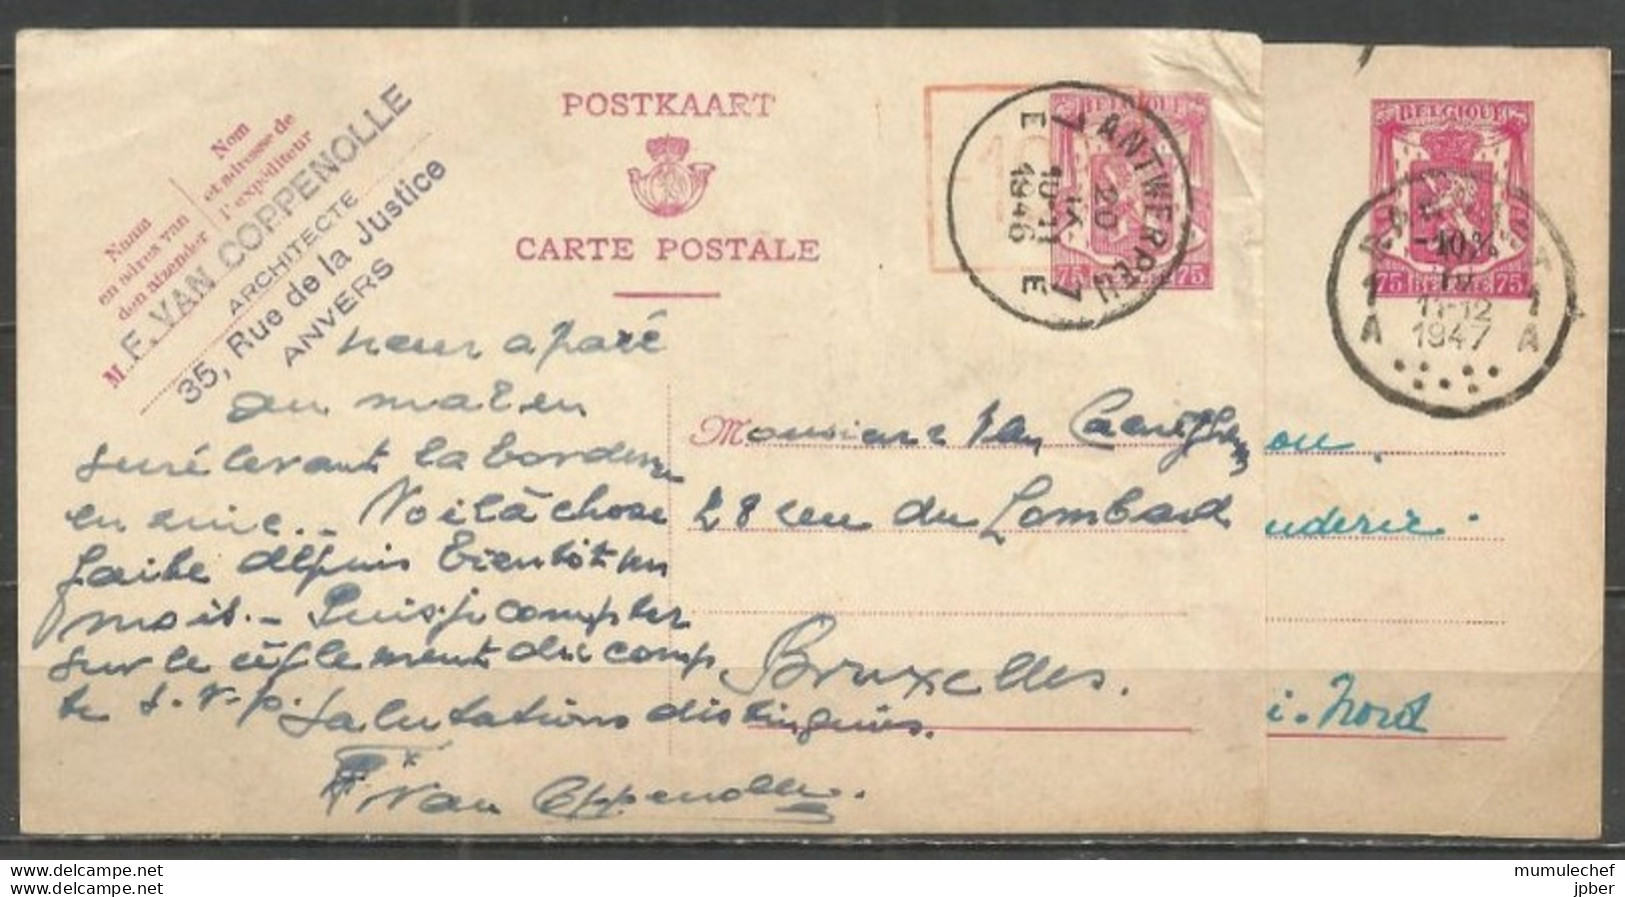 POSTKAART
CARTE POSTALE
Nom
et adresse de
l'expéditeur
Naam
en adres van
den afzender
M
F. VAN COPPENOLLE
ARCHITECTE
35, Rue de la Justice
ANVERS
BELGIQUE
75 75
ANTWERPEN
7 7
E E
20
IX
10-11
1946
a paré
au
surélevant la bordure
en zinc.. Voilà chose
faite depuis bientôt un
mois.- Puis-je compter
sur le règlement du comp
te s.v.p. Salutations distinguées.
F Van Coppenolle.
Monsieur Van
28 rue du Lombard
Bruxelles.
BELGIQUE
75 BELGIË 75
-10%
1 1
A A
11-12
1947
ou.
uderie.
i-Nord
mumulechef
jpber